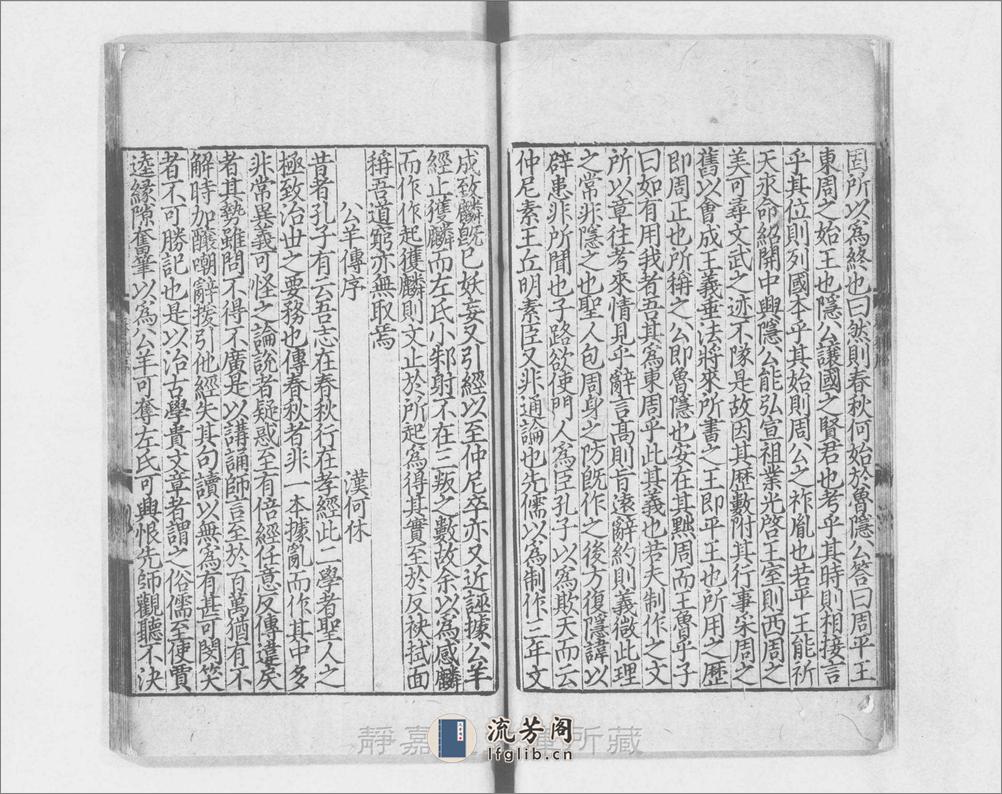 因所以為終也曰然則春秋何始於魯隱公答曰周平王
東周之始王也隱公讓國之賢君也考乎其時則相接言
乎其位則列國本乎其始則周公之祚胤也若平王能祈
天永命紹開中興隱公能弘宣祖業光啓王室則西周之
美可尋文武之迹不隊是故因其歷數附其行事采周之
舊以會成王義垂法將來所書之王即平王也所用之歷
即周正也所稱之公即魯隱也安在其黜周而王魯乎子
曰如有用我者吾其為東周乎此其義也若夫制作之文
所以章往考來情見乎辭言高則旨遠辭約則義微此理
之常非隱之也聖人包周身之防既作之後方復隱諱以
辟患非所聞也子路欲使門人為臣孔子以為欺天而云
仲尼素王丘明素臣又非通論也先儒以為制作三年文
成致麟既已妖妄又引經以至仲尼卒亦又近誣據公羊
經止獲麟而左氏小邾射不在三叛之數故余以為感麟
而作作起獲麟則文止於所起為得其實至於反袂拭面
稱吾道窮亦無取焉
公羊傳序 漢何休
昔者孔子有云吾志在春秋行在孝經此二學者聖人之
極致治世之要務也傳春秋者非一本據亂而作其中多
非常異義可怪之論說者疑惑至有倍經任意反傳違戾
者其勢雖問不得不廣是以講誦師言至於百萬猶有不
解時加釀嘲辭援引他經失其句讀以無為有甚可閔笑
者不可勝記也是以治古學貴文章者謂之俗儒至使賈
逵緣隙奮筆以為公羊可奪左氏可興恨先師觀聽不決
靜嘉
所藏
流芳阁
lfglib.cn